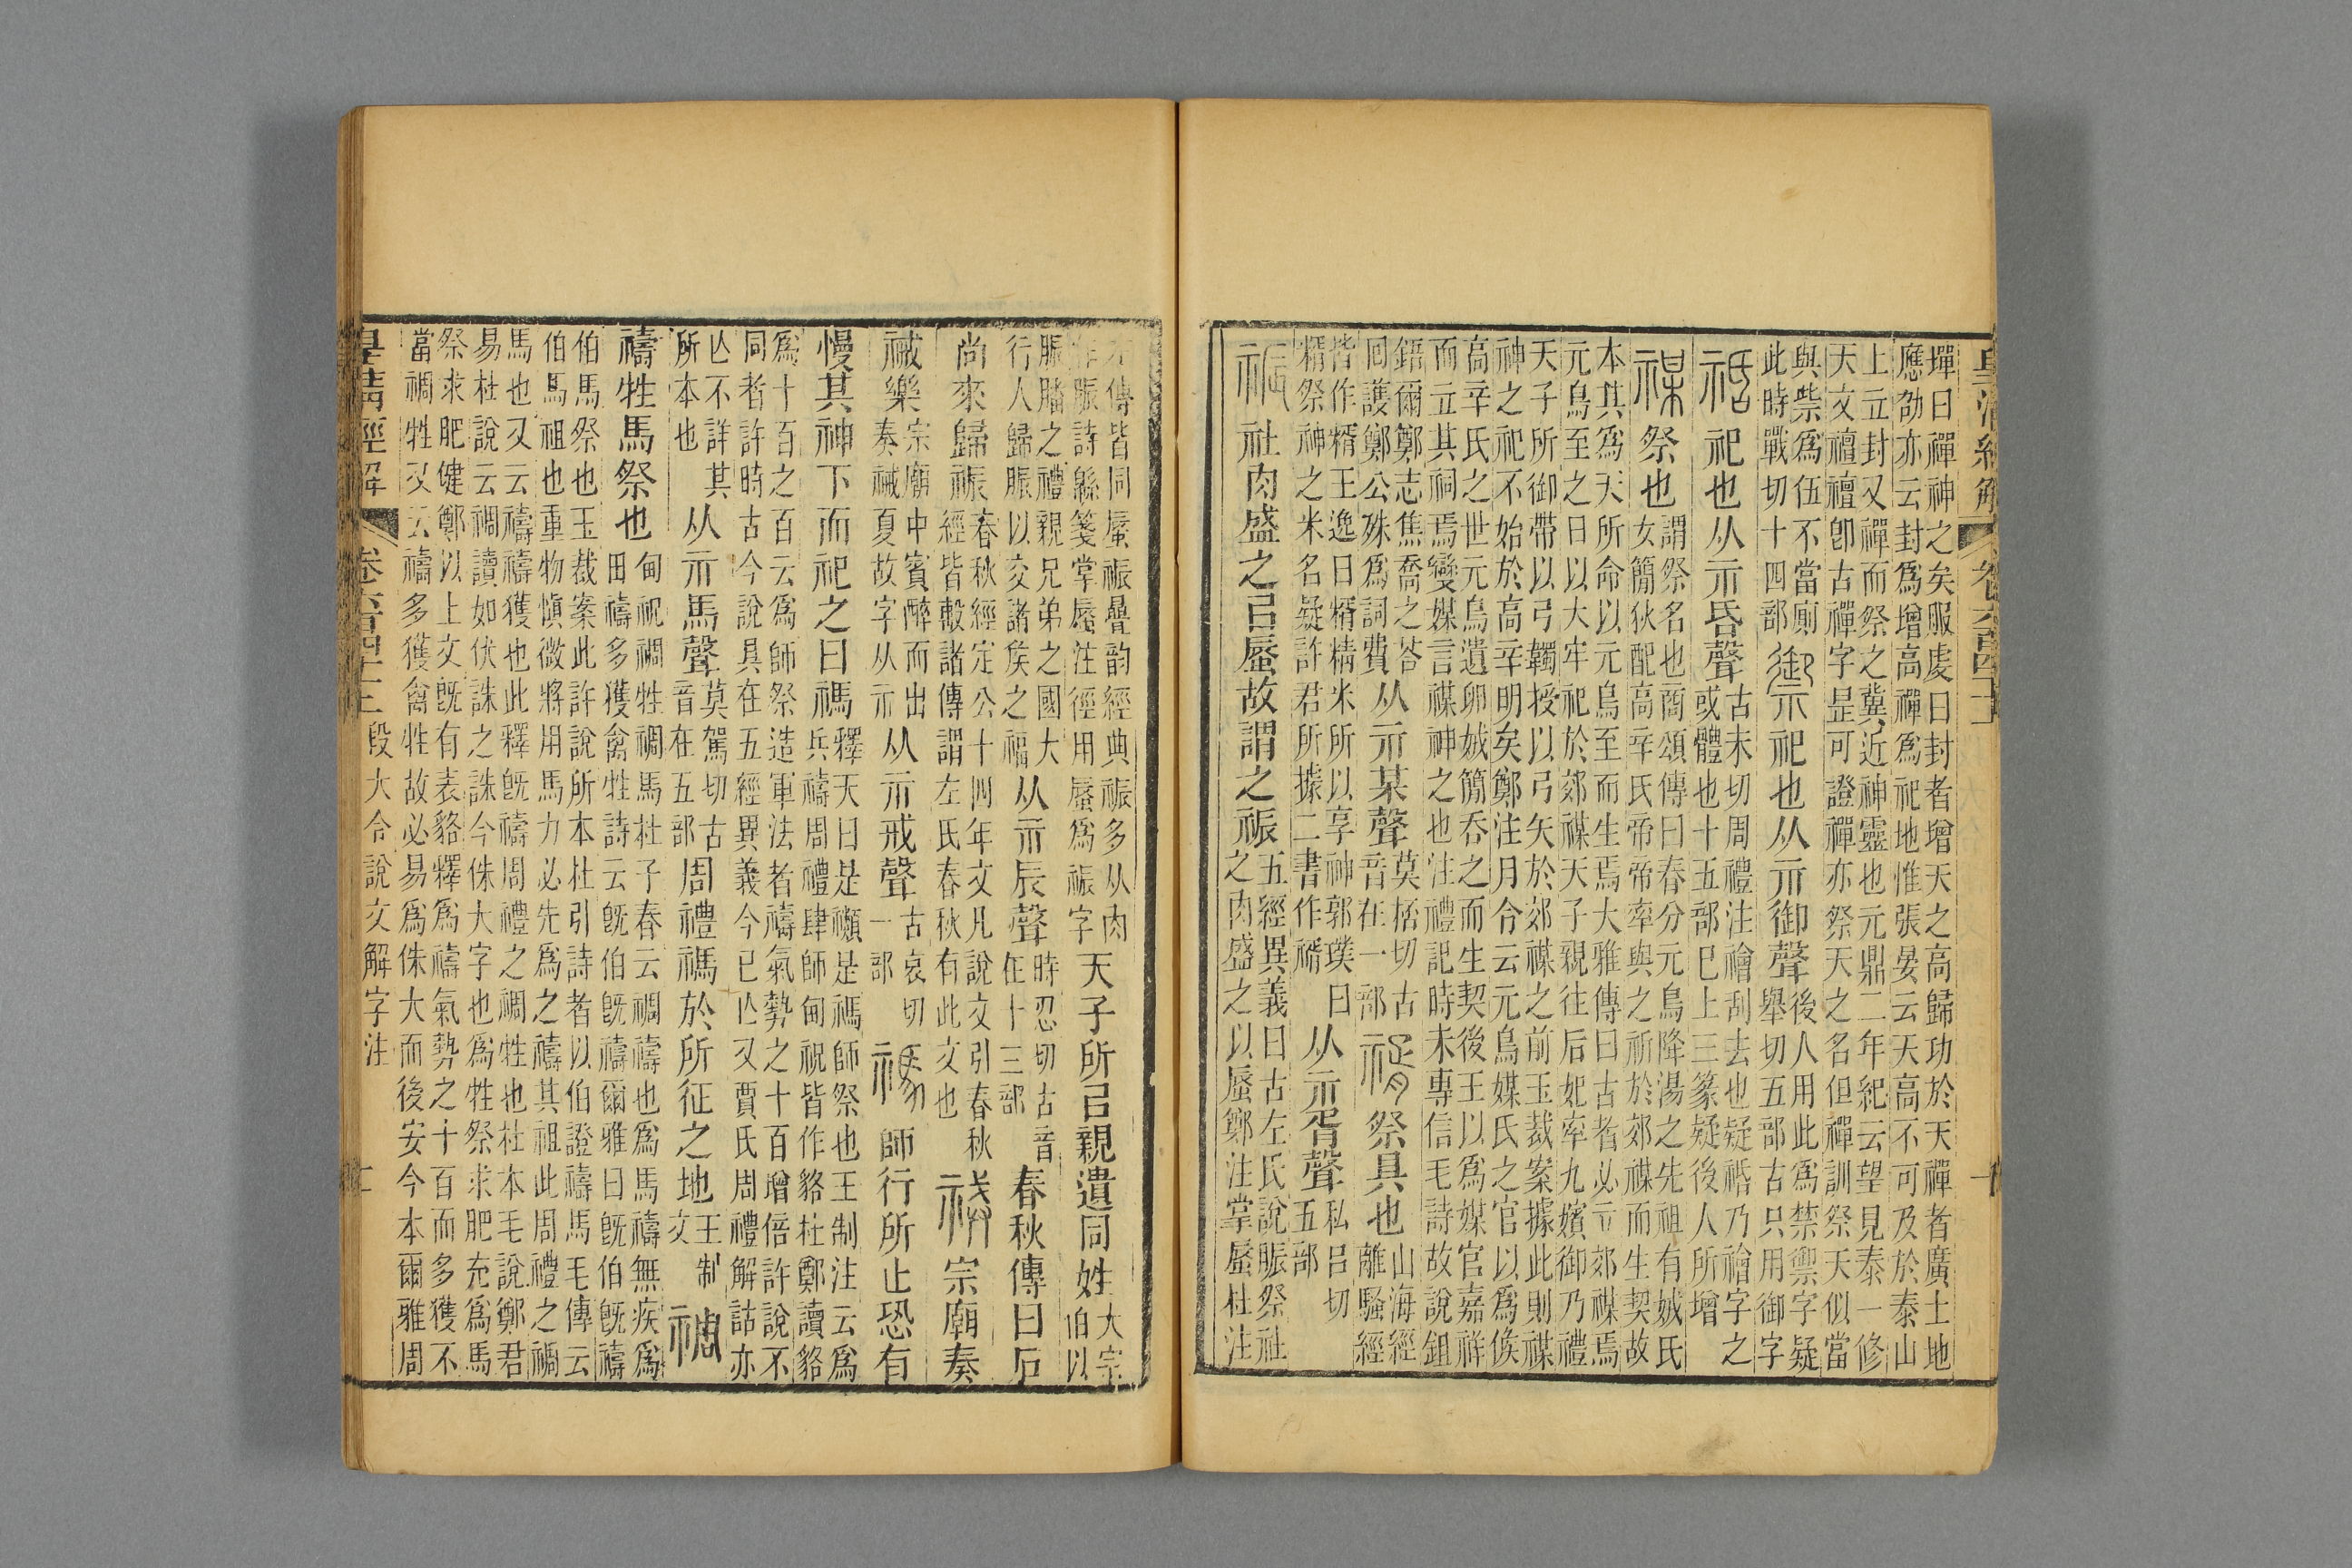 皇淸經解 卷六百四十一 十
墠曰禪神之矣服虔曰封者增天之高歸功於天禪者廣土地
應劭亦云封爲增高禪爲祀地惟張晏云天高不可及於泰山
上立封又禪而祭之冀近神靈也元鼎二年紀云望見泰一修
天文禮禮卽古禪字是可證禪亦祭天之名但禪訓祭天似當
與祡爲伍不當廁
此時戰切十四部
御示祀也从示御聲
後人用此爲禁禦字疑
舉切五部古只用御字
祀也从示昏聲
古末切周禮注禬刮去也疑𥚑乃禬字之
或體也十五部巳上三篆疑後人所增
禖祭也
謂祭名也商頌傳曰春分元鳥降湯之先祖有娀氏
女簡狄配高辛氏帝帝率與之祈於郊禖而生契故
本其爲天所命以元鳥至而生焉大雅傳曰古者必立郊禖焉
元鳥至之日以大牢祀於郊禖天子親往后妃率九嬪御乃禮
天子所御帶以弓韣授以弓矢於郊禖之前玉裁案據此則禖
神之祀不始於高辛明矣鄭注月令云元鳥媒氏之官以爲侯
高辛氏之世元鳥遺卵娀簡吞之而生契後王以爲媒官嘉祥
而立其祠焉變媒言禖神之也注禮記時未專信毛詩故說鉏
鋙爾鄭志焦喬之荅
囘護鄭公殊爲詞費
从示某聲
莫桮切古
音在一部
祭具也
山海經
離騷經
皆作糈王逸曰糈精米所以享神郭璞曰
糈祭神之米名疑許君所據二書作𥛜
从示胥聲
私呂切
五部
祳社肉盛之㠯蜃故謂之祳
五經異義曰古左氏說脤祭社
之肉盛之以蜃鄭注掌蜃杜注
左傳皆同蜃祳疊韵經典祳多从肉
作脤詩緜箋掌蜃注徑用蜃爲祳字
天子所㠯親遺同姓
大宗
伯以
脤膰之禮親兄弟之國大
行人歸脤以交諸侯之福
从示辰聲
時忍切古音
在十三部
春秋傳曰石
尚來歸祳
春秋經定公十四年文凡說文引春秋
經皆𣪠諸傳謂左氏春秋有此文也
祴宗廟奏
祴樂
宗廟中賓醉而出
奏祴夏故字从示
从示戒聲
古哀切
一部
禡師行所止恐有
慢其神下而祀之曰禡
釋天曰是禷是禡師祭也王制注云爲
兵禱周禮肆師甸祝皆作貉杜鄭讀貉
爲十百之百云爲師祭造軍法者禱氣勢之十百增倍許說不
同者許時古今說具在五經異義今已亾又賈氏周禮解詁亦
亾不詳其
所本也
从示馬聲
莫駕切古
音在五部
周禮禡於所征之地
王制
文
禂禱牲馬祭也
甸祝禂牲禂馬杜子春云禂禱也爲馬禱無疾爲
田禱多獲禽牲詩云旣伯旣禱爾雅曰旣伯旣禱
伯馬祭也玉裁案此許說所本杜引詩者以伯證禱馬毛傳云
伯馬祖也重物愼微將用馬力必先爲之禱其祖此周禮之禂
馬也又云禱禱獲也此釋旣禱周禮之禂牲也杜本毛說鄭君
易杜說云禂讀如伏誅之誅今侏大字也爲牲祭求肥充爲馬
祭求肥健鄭以上文旣有表貉釋爲禱氣勢之十百而多獲不
當禂牲又云禱多獲禽牲故必易爲侏大而後安今本爾雅周
皇淸經解 卷六百四十一 段大令說文解字注 十一